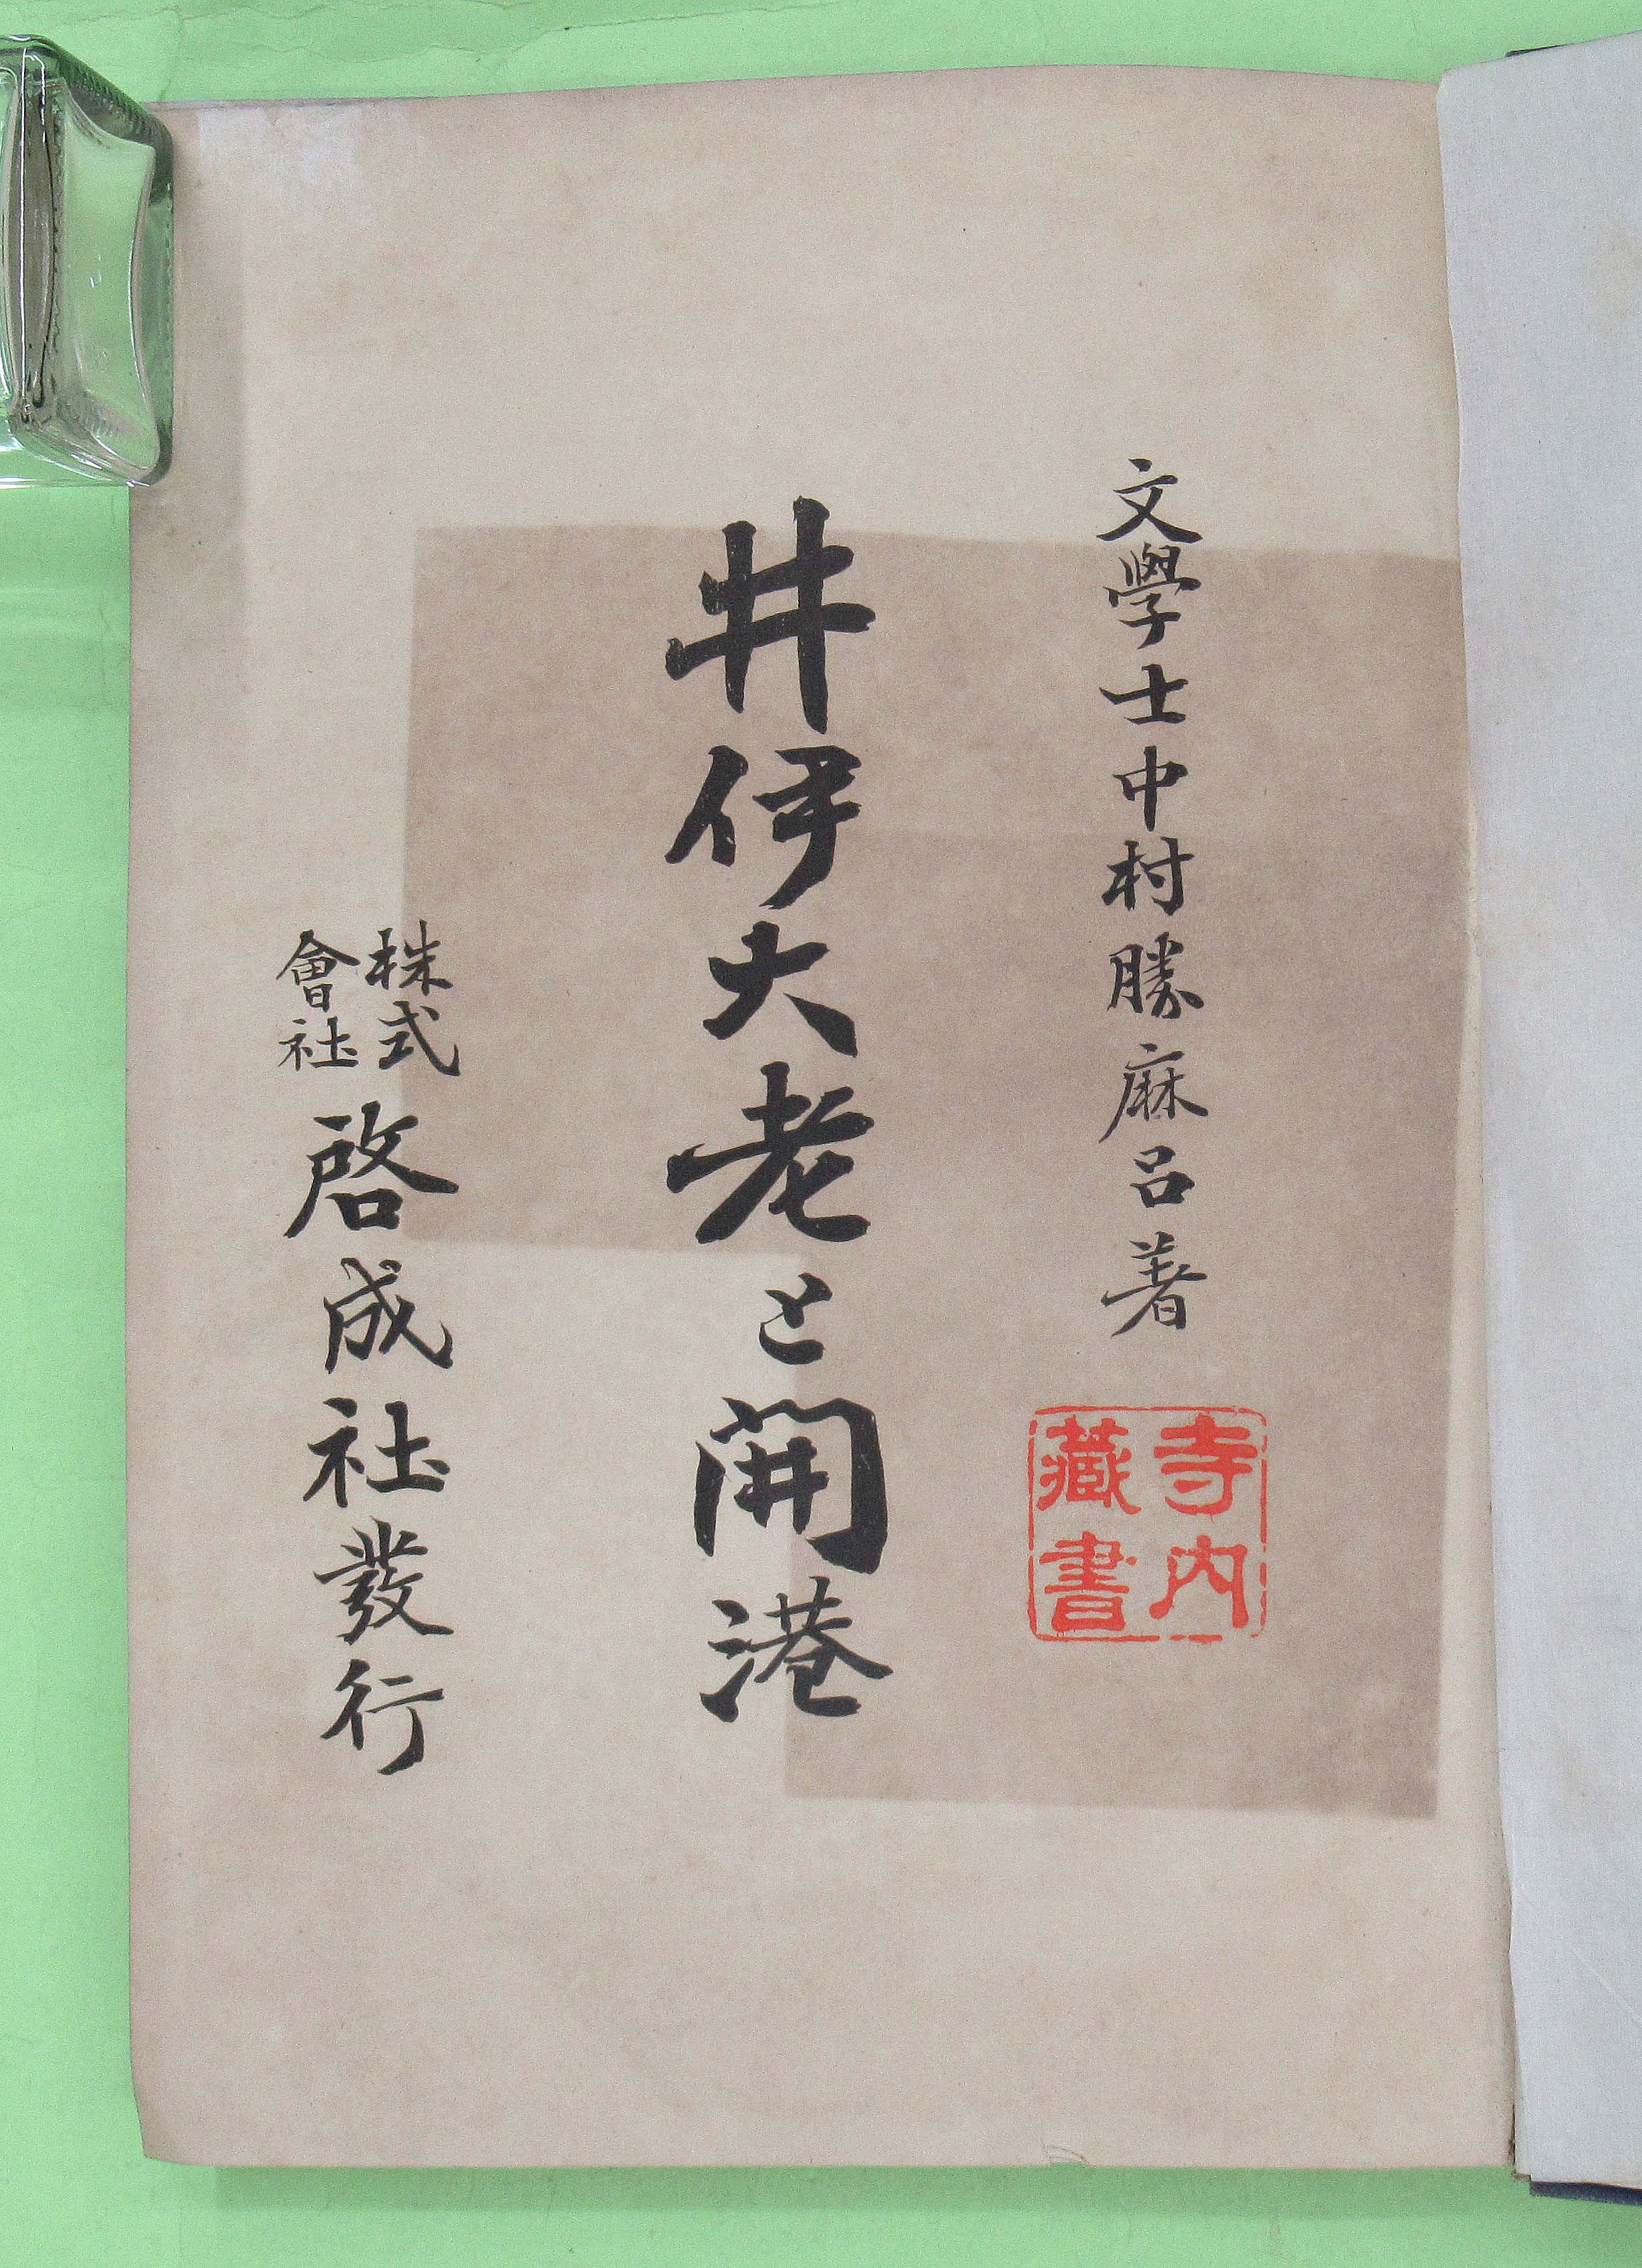 文學士中村勝麻呂著
寺内
藏書
井伊大老と開港
株式
會社
啓成社發行